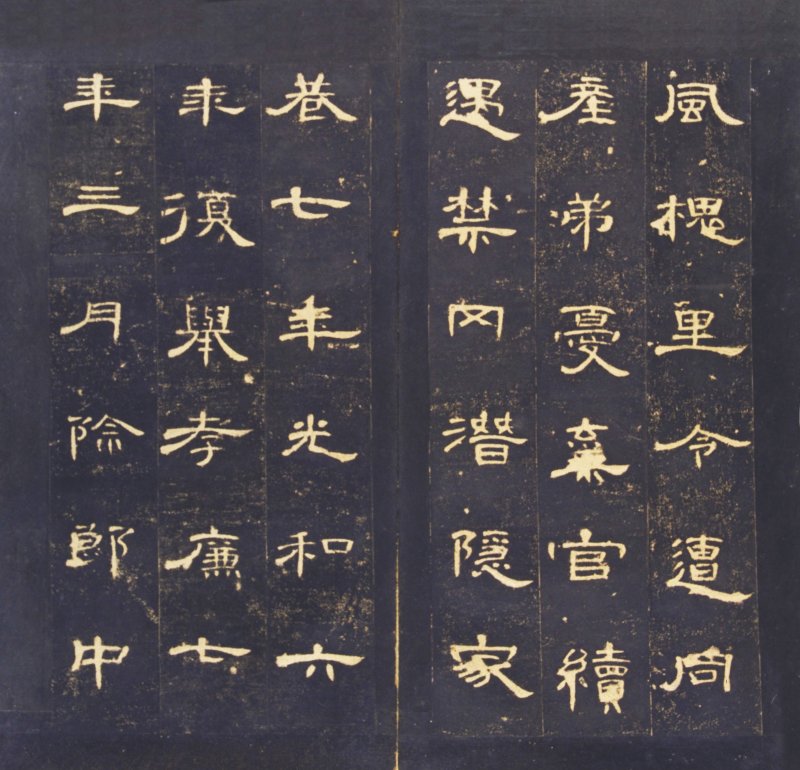 風槐里令遭同
產弟憂棄官續
遇禁冈潛隱家
巷七年光和六
年復舉孝廉七
年三月除郎中